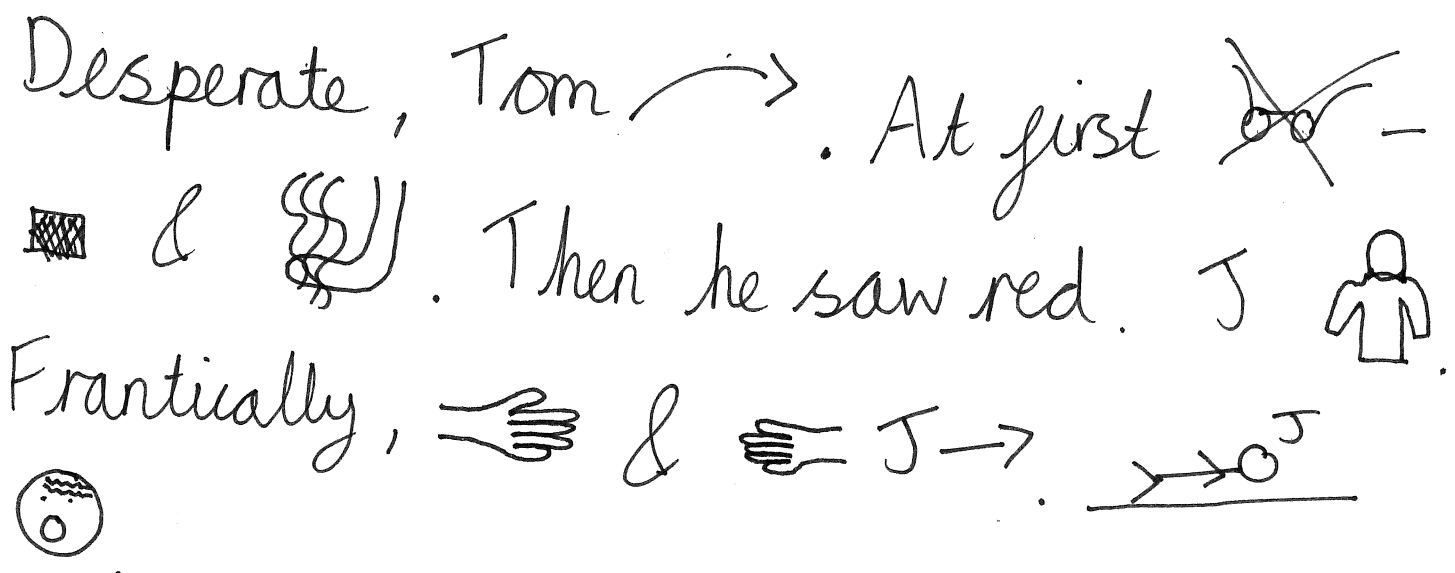 Desperate, Tom . At first —
& . Then he saw red. J .
Frantically, & J .
J